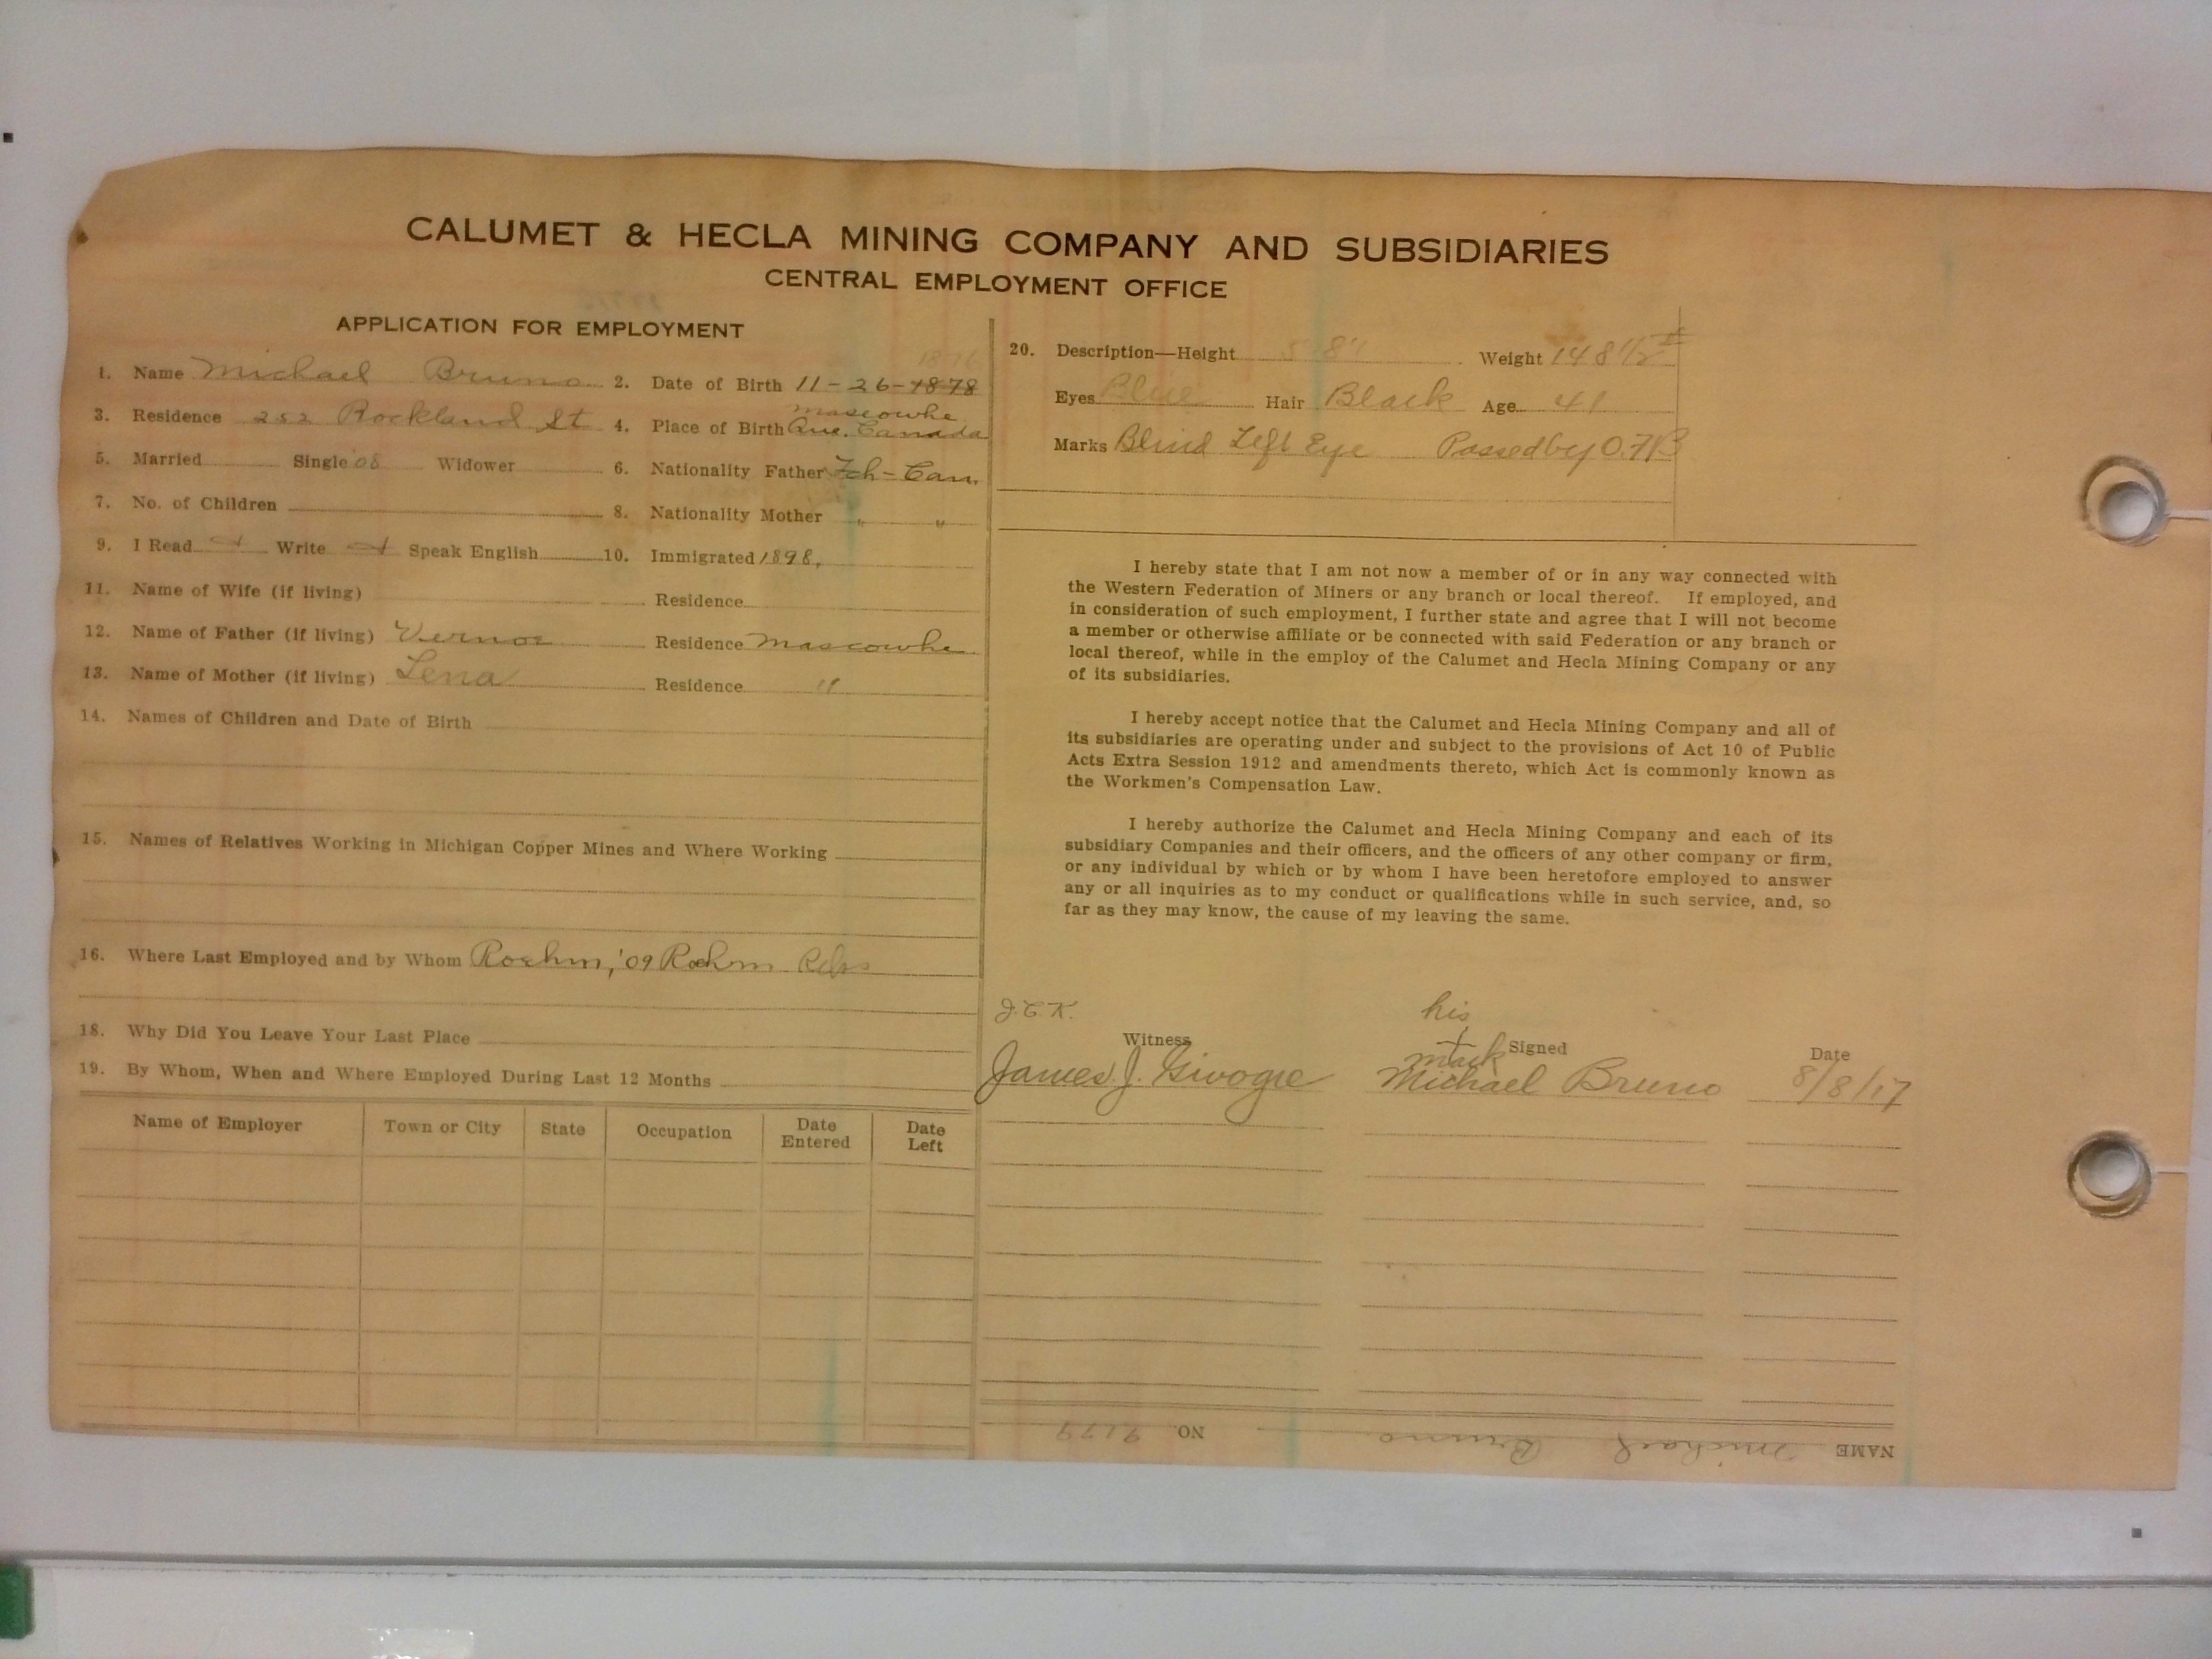 CALUMET & HECLA MINING COMPANY AND SUBSIDIARIES
CENTRAL EMPLOYMENT OFFICE
APPLICATION FOR EMPLOYMENT
1876
1. Name Michael Bruno 2. Date of Birth 11-26-1878
3. Residence 252 Rockland St 4. Place of Birth Mascowhe Que. Canada
5. Married Single 08 Widower 6. Nationality Father Fch-Can.
7. No. of Children 8. Nationality Mother " "
9. I Read Write Speak English 10. Immigrated 1898,
11. Name of Wife (if living) Residence
12. Name of Father (if living) Residence Mascowhe
13. Name of Mother (if living) Lena Residence "
14. Names of Children and Date of Birth
15. Names of Relatives Working in Michigan Copper Mines and Where Working
16. Where Last Employed and by Whom Roehm, '09 Roehm
18. Why Did You Leave Your Last Place
19. By Whom, When and Where Employed During Last 12 Months
Name of Employer Town or City State Occupation Date Entered Date Left
20. Description—Height Weight 148 1/2 #
Eyes Blue Hair Black Age 41
Marks Blind Left Eye Passed by O.F.B
I hereby state that I am not now a member of or in any way connected with
the Western Federation of Miners or any branch or local thereof. If employed, and
in consideration of such employment, I further state and agree that I will not become
a member or otherwise affiliate or be connected with said Federation or any branch or
local thereof, while in the employ of the Calumet and Hecla Mining Company or any
of its subsidiaries.
I hereby accept notice that the Calumet and Hecla Mining Company and all of
its subsidiaries are operating under and subject to the provisions of Act 10 of Public
Acts Extra Session 1912 and amendments thereto, which Act is commonly known as
the Workmen's Compensation Law.
I hereby authorize the Calumet and Hecla Mining Company and each of its
subsidiary Companies and their officers, and the officers of any other company or firm,
or any individual by which or by whom I have been heretofore employed to answer
any or all inquiries as to my conduct or qualifications while in such service, and, so
far as they may know, the cause of my leaving the same.
J.C.K. his
Witness Signed Date
mark
James J. Givogre Michael Bruno 8/8/17
NAME Michael Bruno NO. 9179